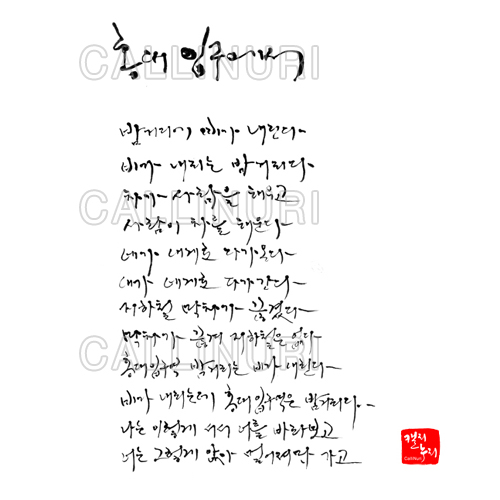 홍대 입구에서
밤거리에 비가 내린다
비가 내리는 밤거리다
차가 사람을 태우고
사람이 차를 태운다
네가 내게로 다가온다
내가 네게로 다가간다
지하철 막차가 끊겼다
막차가 끊겨 지하철은 없다
홍대입구역 밤거리는 비가 내린다
비가 내리는데 홍대입구역은 밤거리다
나는 이렇게 서서 너를 바라보고
너는 그렇게 앉아 멀어져만 가고
캘리누리
CalliNuri
CALLINURI
CALLINURI
CALLINURI